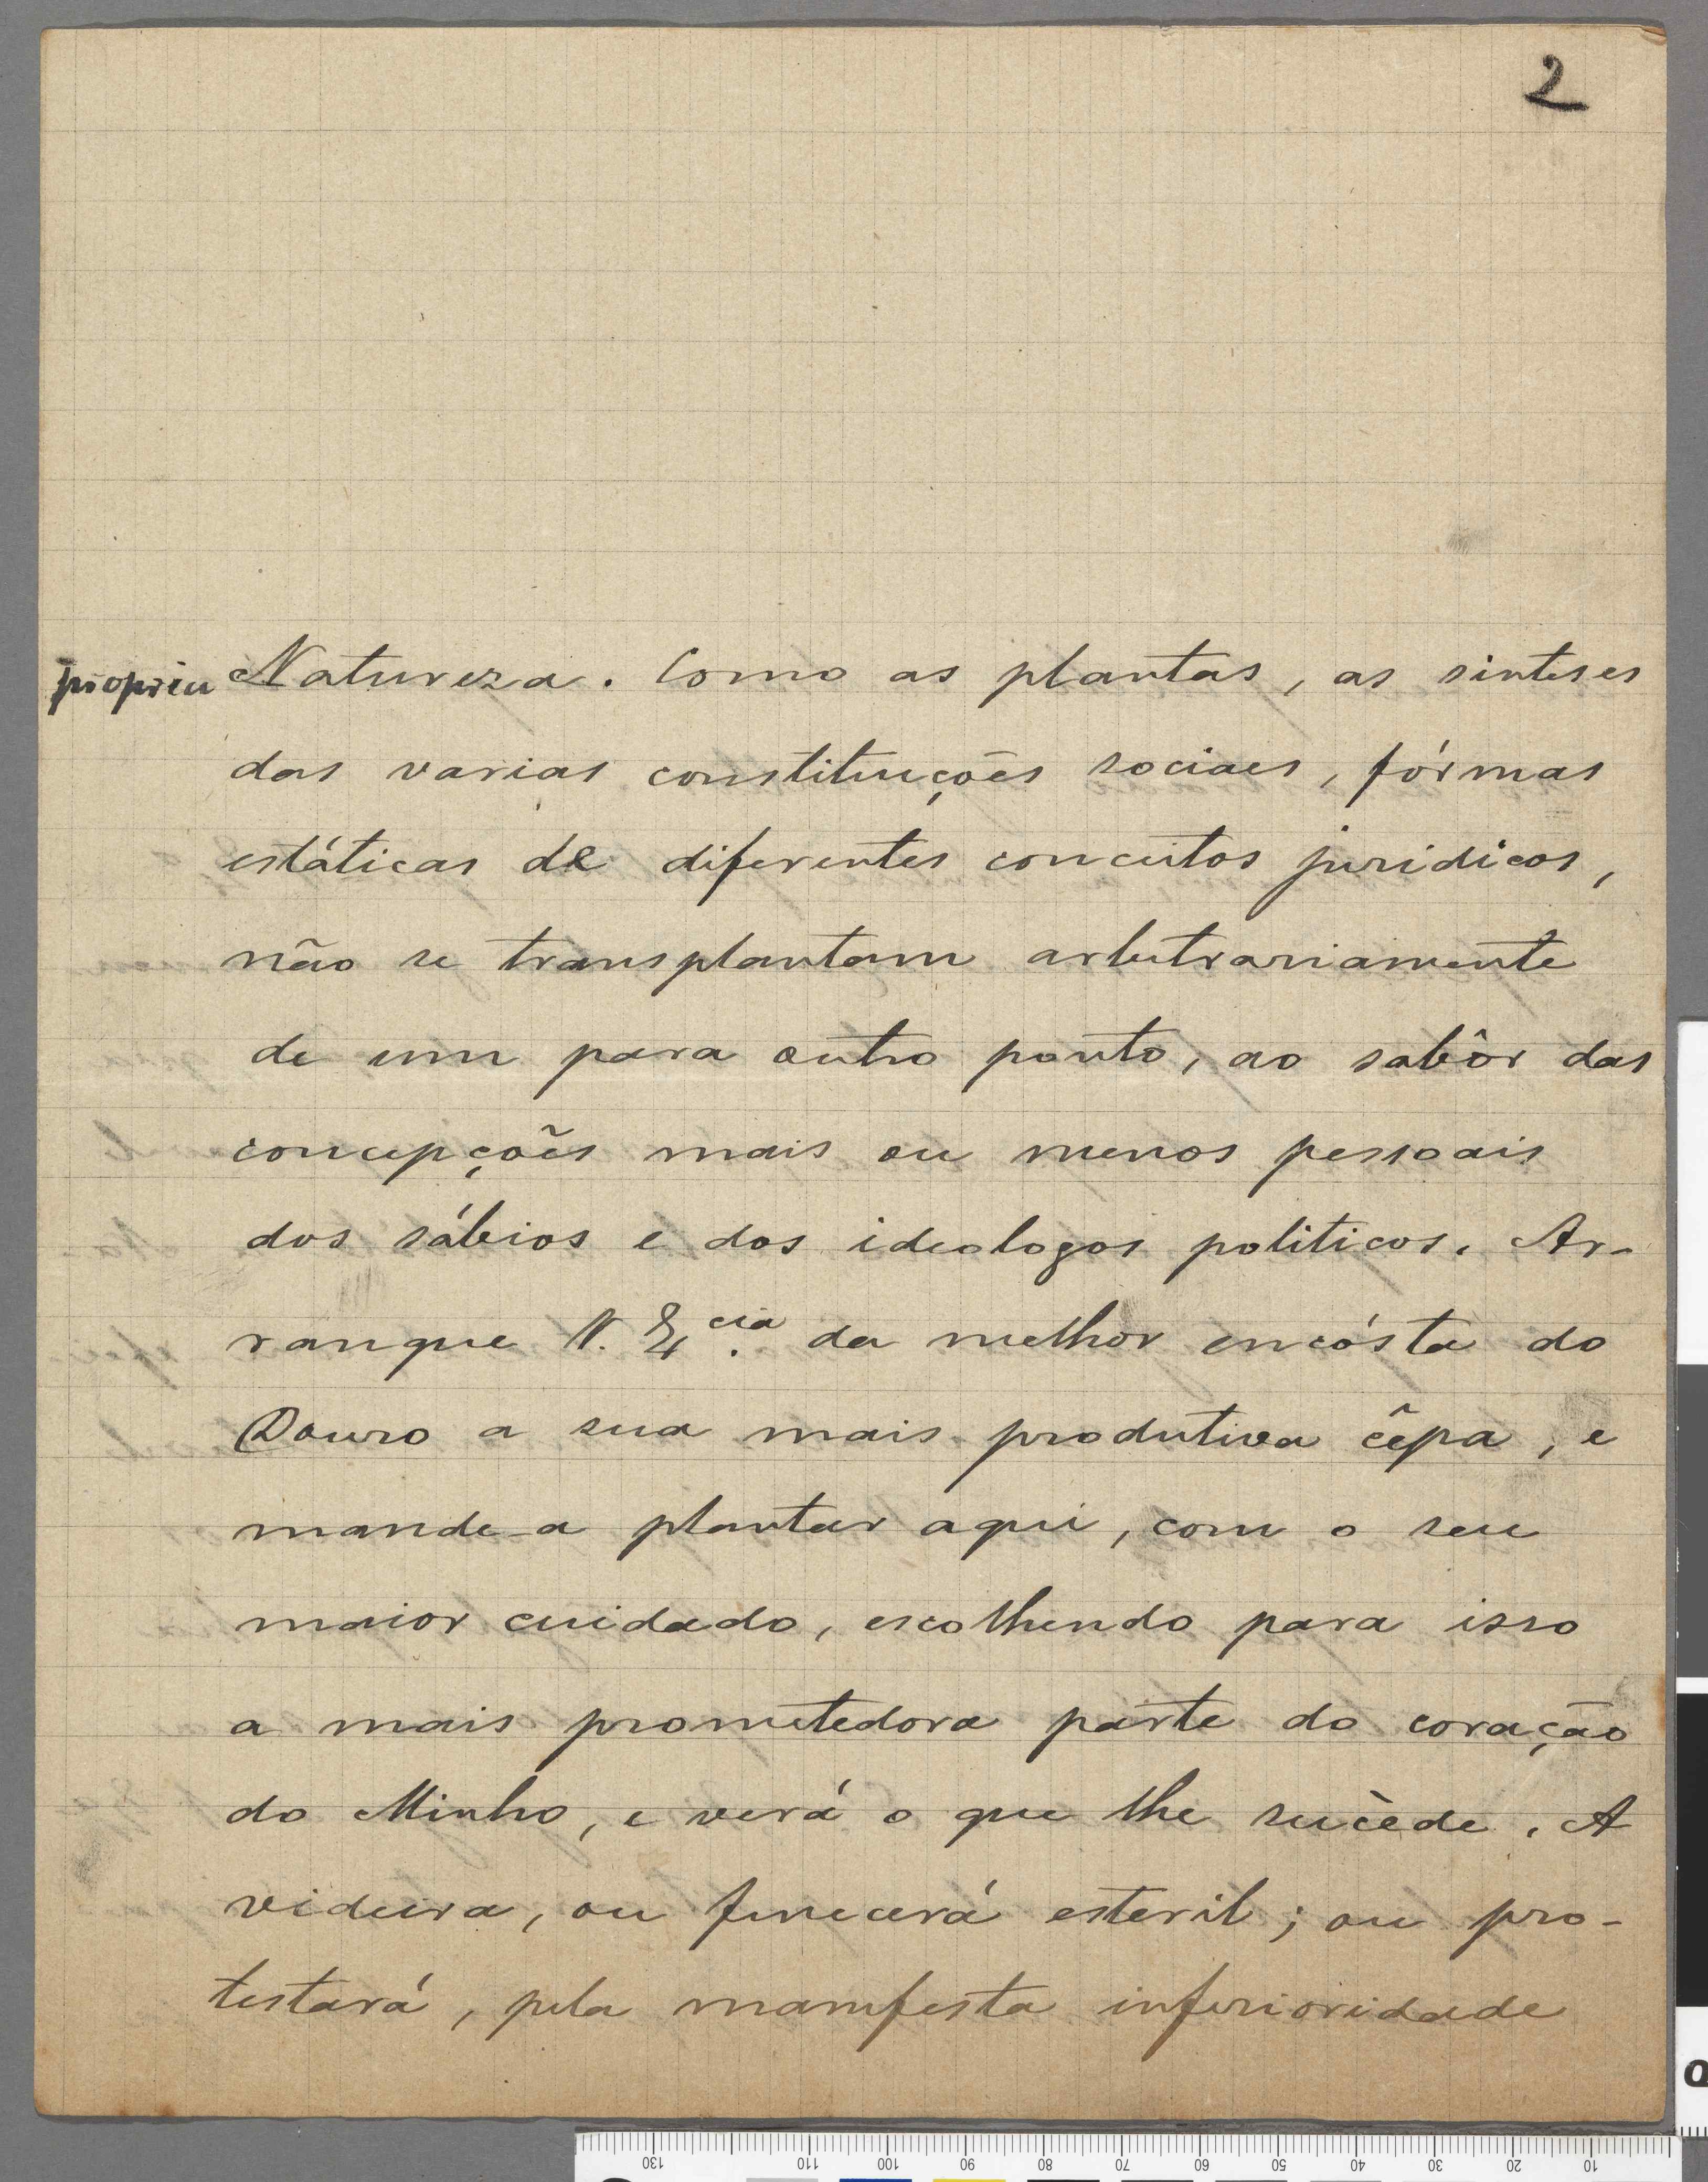 2
propria Natureza. Como as plantas, as sinteses
das varias constituições sociaes, fórmas
estáticas de diferentes conceitos juridicos,
não se transplantam arbitrariamente
de um para outro ponto, ao sabôr das
concepções mais ou menos pessoais
dos sábios e dos ideologos politicos. Ar-
ranque V. Ex.cia da melhor encósta do
Douro a sua mais produtiva cêpa, e
mande-a plantar aqui, com o seu
maior cuidado, escolhendo para isso
a mais prometedora parte do coração
do Minho, e verá o que lhe sucède. A
videira, ou fenecerá esteril; ou pro-
testará, pela manifesta inferioridade
130 110 100 90 80 70 60 50 40 30 20 10